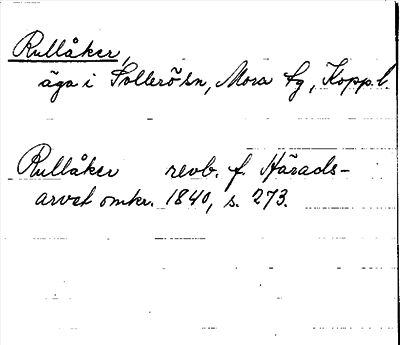 Rullåker,
äga i Sollerö sn, Mora tg, Kopp. l.
Rullåker revb. f. Härads-
arvet omkr. 1840, s. 273.